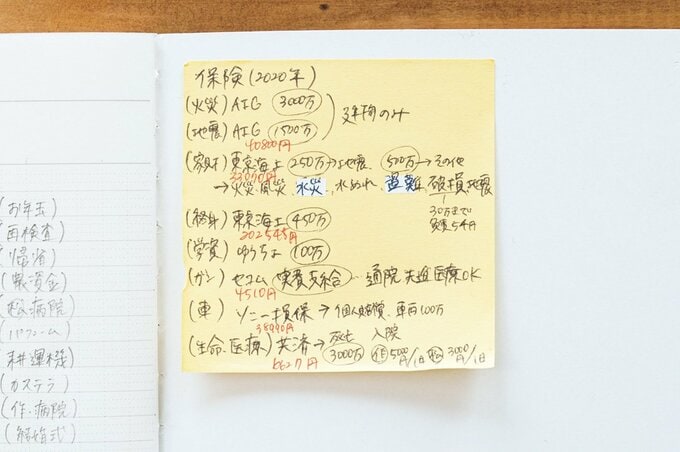 保険(2020年)
(火災) AIG 3000万
(地震) AIG 1500万
建物のみ
40800円
(家財) 東京海上 250万→地震、500万→その他
→火災、風災、水災、水ぬれ、盗難、破損、地震
30万まで
(終身) 東京海上 450万
202545円
(学資) ゆうちょ 100万
(ガン) セコム 実費支給 通院 先進医療OK
4510円
(車) ソニー損保→個人賠償、車両100万
(生命、医療) 共済→死亡 入院
3000万 5000円/1日 3000円/1日
6627円
(お年玉)
(帰省)
(松病院)
(耕運機)
(カステラ)
(作・病院)